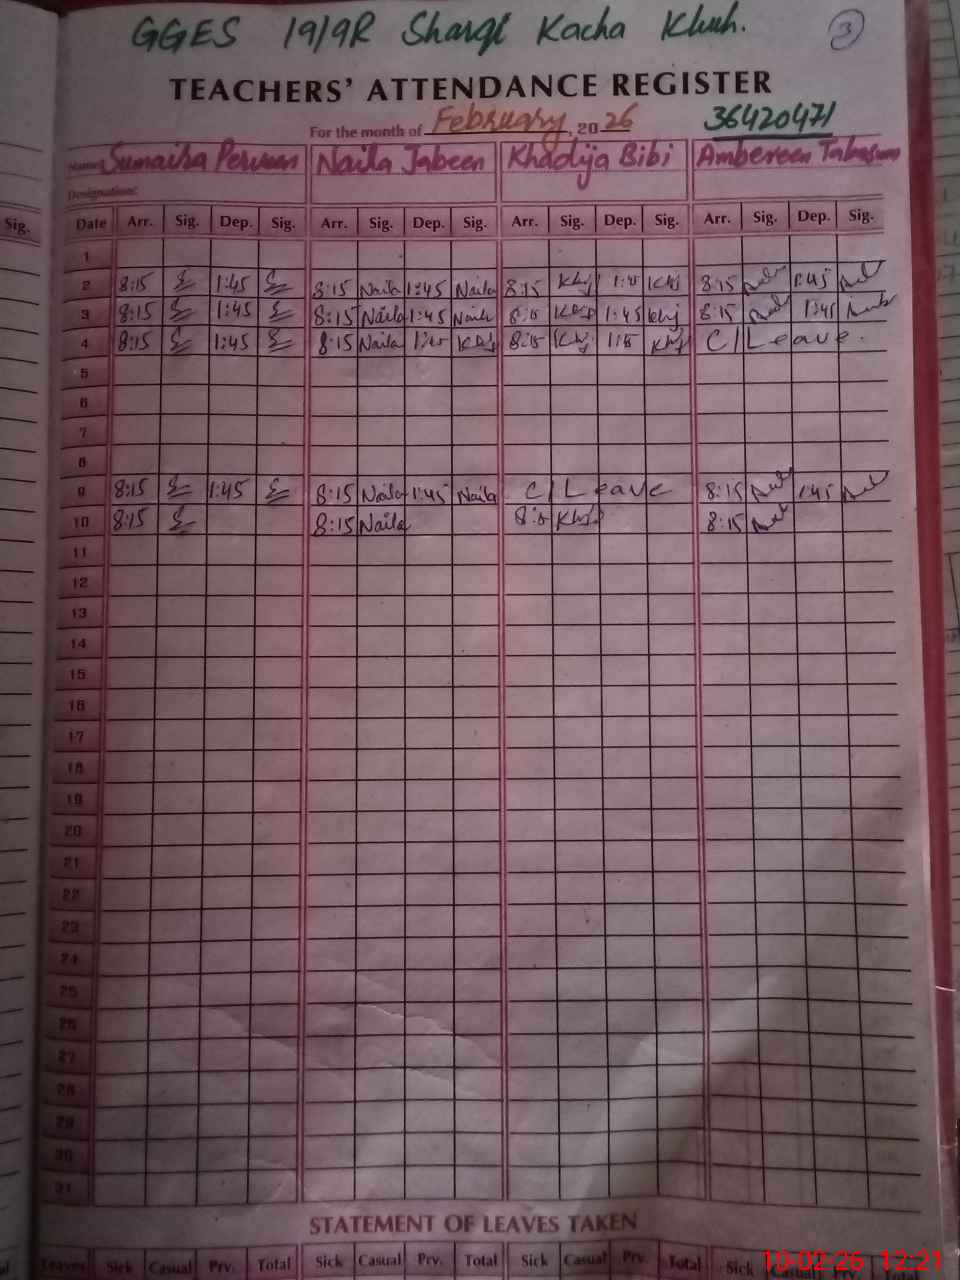 GGES 19/9R Sharqi Kacha Khuh. 3
TEACHERS' ATTENDANCE REGISTER
For the month of February, 2026 36420471
Name: Sumaira Perveen Naila Jabeen Khadija Bibi Ambereen Tabasum
Designation:
Sig. Date Arr. Sig. Dep. Sig. Arr. Sig. Dep. Sig. Arr. Sig. Dep. Sig. Arr. Sig. Dep. Sig.
1
2 8:15 1:45 8:15 Naila 1:45 Naila 8:15 Khj 1:45 Khj 8:15 1:45
3 8:15 1:45 8:15 Naila 1:45 Naila 8:15 Khj 1:45 Khj 8:15 1:45
4 8:15 1:45 8:15 Naila 1:45 Khj 8:15 Khj Khj C/Leave.
5
6
7
8
9 8:15 1:45 8:15 Naila 1:45 Naila C/Leave 8:15 1:45
10 8:15 8:15 Naila Khj 8:15
11
12
13
14
15
16
17
18
19
20
21
22
23
24
25
26
27
28
29
30
31
STATEMENT OF LEAVES TAKEN
Leaves Sick Casual Prv. Total Sick Casual Prv. Total Sick Casual Prv. Total Sick Casual
10-02-26 12:21